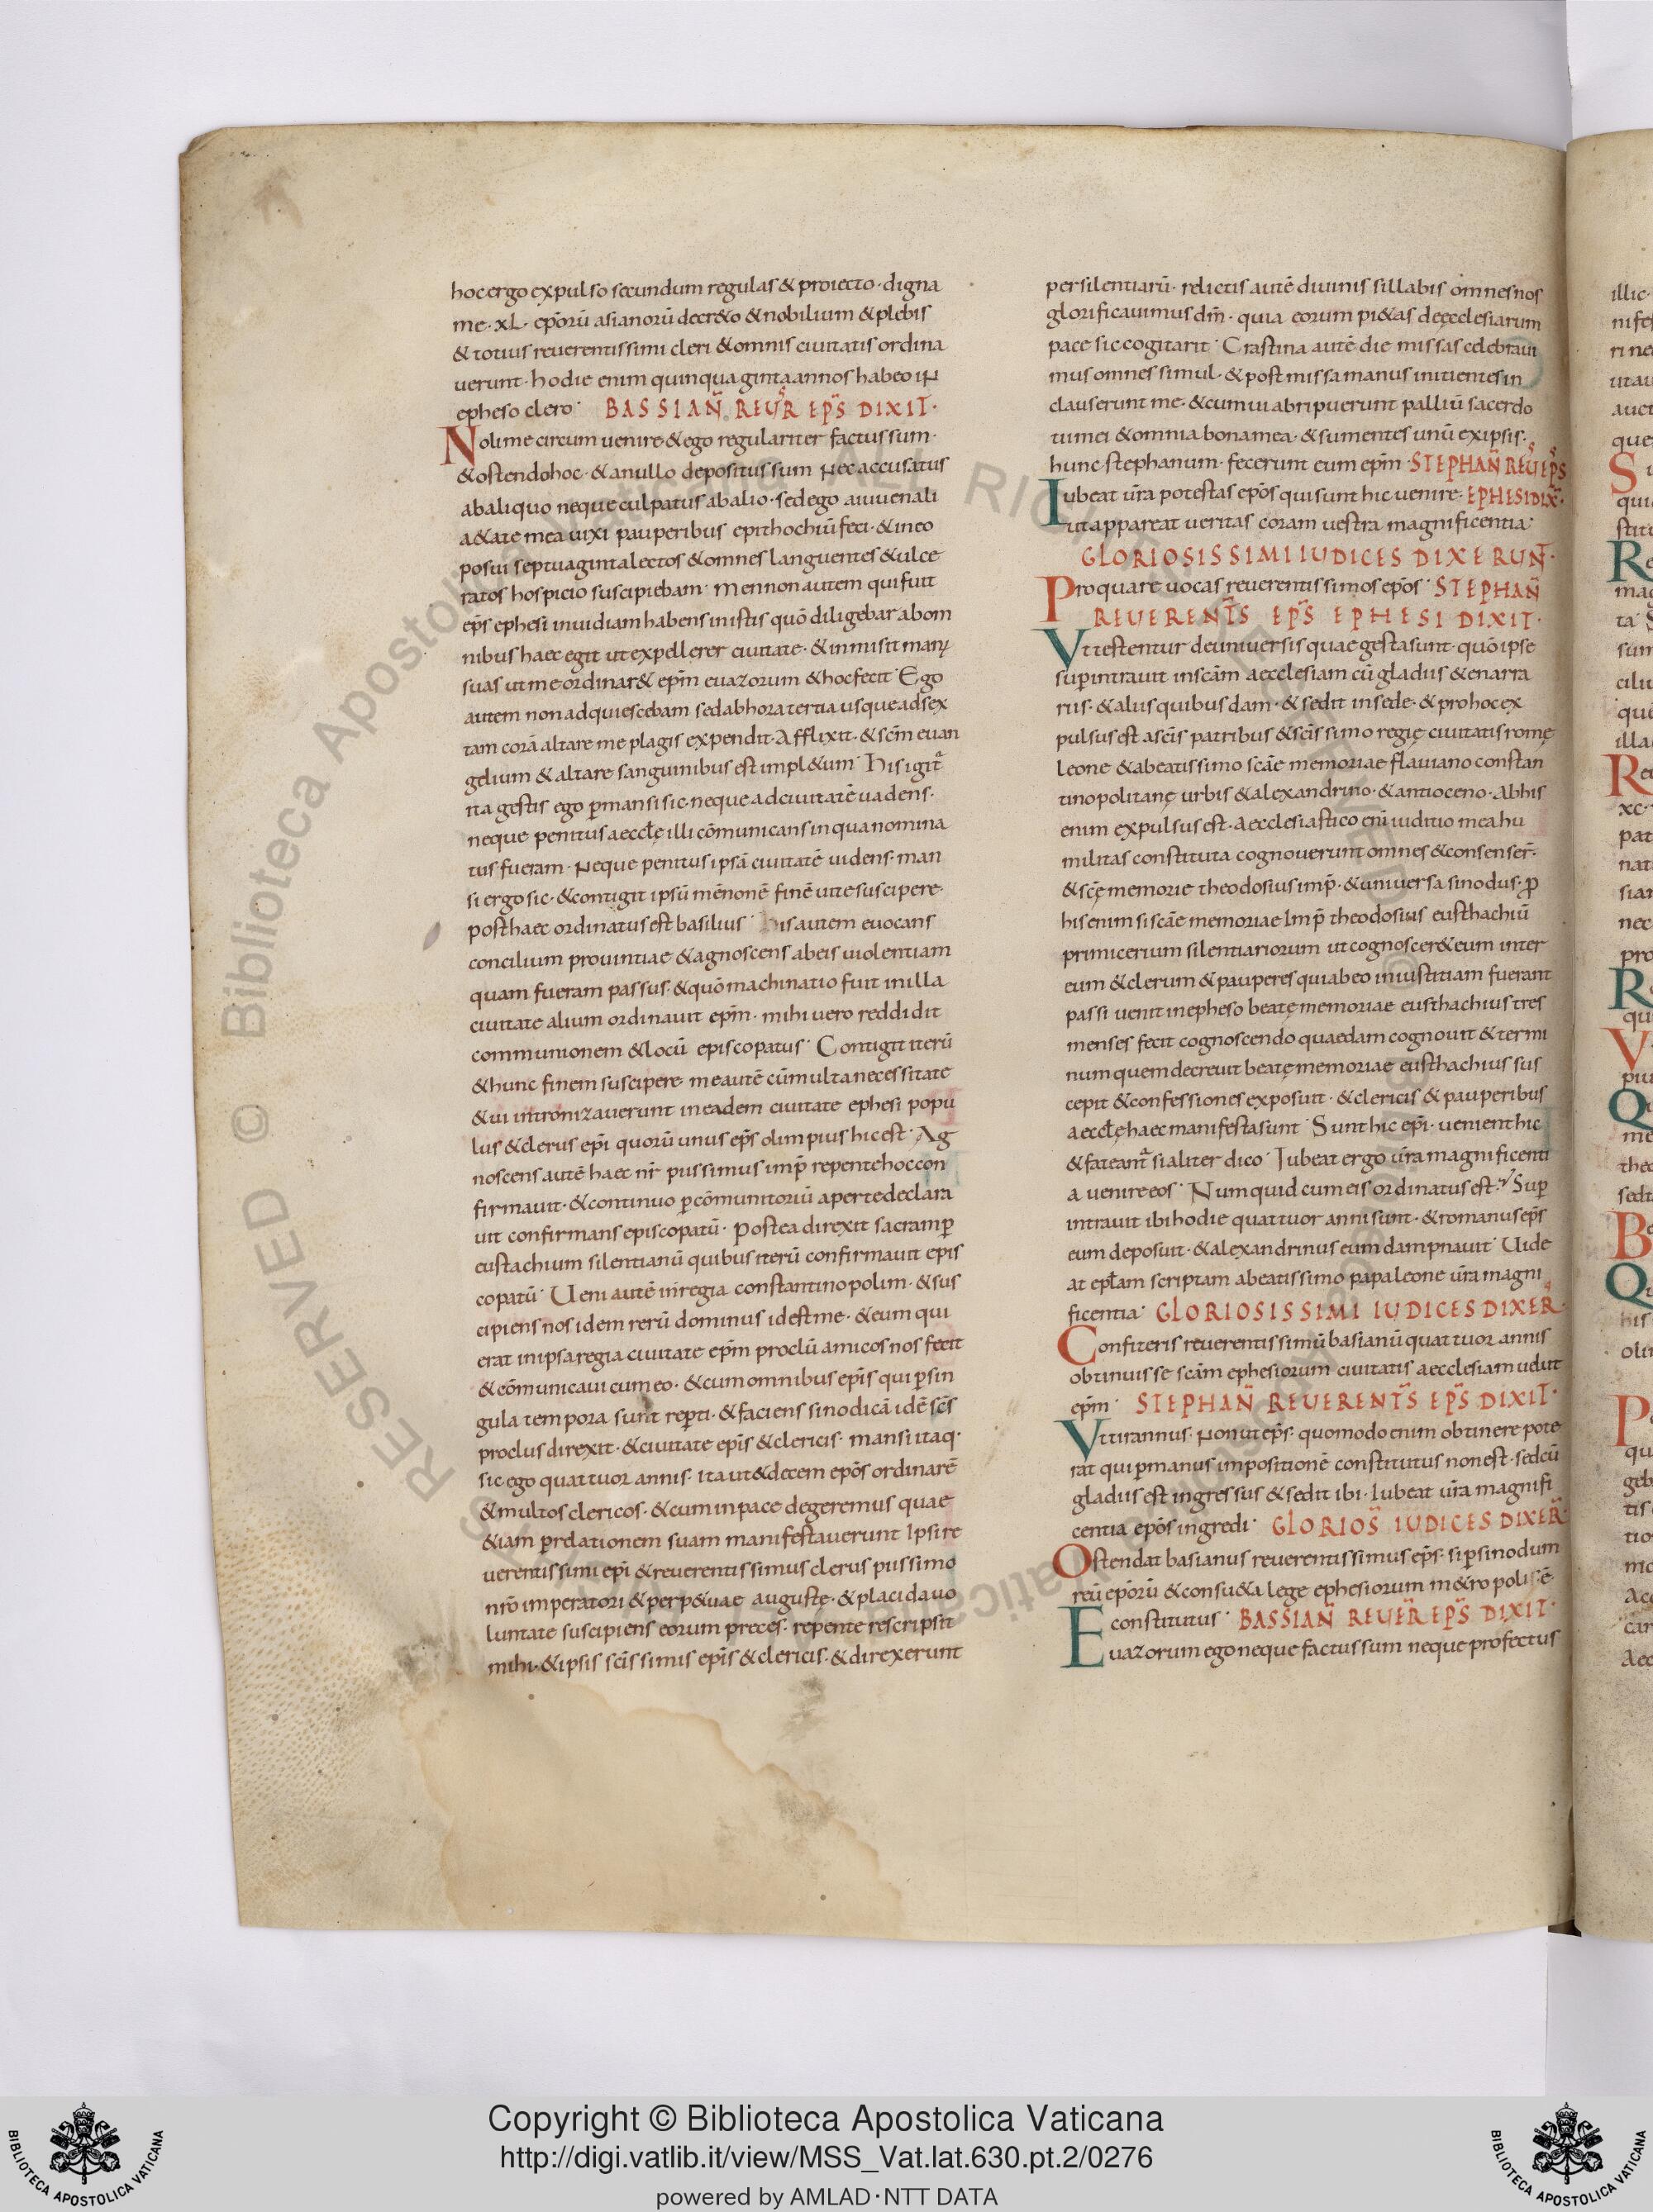 hoc ergo expulso secundum regulas & proiecto · digna
me · xL · ep̄orū asianorū decr&o & nobilium & plebis
& totius reuerentissimi cleri & omnis ciuitatis ordina
uerunt · hodie enim quinquaginta annos habeo iN
epheso clero · BASSIAÑ REUR̃ EP̃S DIXIT ·
Noli me circum uenire & ego regulariter factus sum ·
& ostendo hoc · & a nullo depositus sum Nec accusatus
ab aliquo neque culpatus ab alio · sed ego a iuuenali
a&ate mea uixi pauperibus epithochiū feci · & in eo
posui septuaginta lectos & omnes languentes & ulce
ratos hospicio suscipiebam · mennon autem qui fuit
ep̄s ephesi inuidiam habens in istis quō diligebar ab om
nibus haec egit ut expellerer ciuitate · & inmisit man
suas ut me ordinar& ep̄m euazorum & hoc fecit · Ego
autem non adquiescebam sed ab hora tertia usque ad sex
tam corā altare me plagis expendit · Afflixit · & sc̄m euan
gelium & altare sanguinibus est impl&um · His igit̄
ita gestis ego p̄mansi sic · neque ad ciuitatē uadens ·
neque penitus aeccłę illi cōmunicans in qua nomina
tus fueram · Neque penitus ipsā ciuitatē uidens · man
si ergo sic · & contigit ipsū mēnonē finē uite suscipere ·
post haec ordinatus est basilius · His autem euocans
concilium prouintiae & agnoscens ab eis uiolentiam
quam fueram passus · & quō machinatio fuit in illa
ciuitate alium ordinauit ep̄m · mihi uero reddidit
communionem & locū episcopatus · Contigit iterū
& hunc finem suscipere · me autē cū multa necessitate
& ui intronizauerunt in eadem ciuitate ephesi popu
lus & clerus ep̄i quorū unus ep̄s olimpius hic est · Ag
noscens autē haec nr̄ piissimus imp̄ repente hoc con
firmauit · & continuo p̄ cōmunitoriū aperte declara
uit confirmans episcopatū · Postea direxit sacram p̄
eustachium silentianū quibus iterū confirmauit epis
copatū · Ueni autē in regia constantinopolim · & sus
cipiens nos idem rerū dominus id est me · & eum qui
erat in ipsa regia ciuitate ep̄m proclū amicos nos fecit
& cōmunicaui cum eo · & cum omnibus ep̄is qui p̄ sin
gula tempora sunt rep̄ti · & faciens sinodicā idē sc̄s
proclus direxit · & ciuitate ep̄is & clericis · mansi itaq ·
sic ego quattuor annis · ita ut & decem ep̄os ordinarē
& multos clericos · & cum in pace degeremus quae
&iam p̄ relationem suam manifestauerunt Ipsi re
uerentissimi ep̄i & reuerentissimus clerus piissimo
nr̄o imperatori & perp&uae augustę · & placida uo
luntate suscipiens eorum preces · repente rescripsit
mihi · & ipsis sc̄issimis ep̄is & clericis · & direxerunt
per silentiariū · relictis autē diuinis sillabis omnes nos
glorificauimus dm̄ · quia eorum pi&as de ęcclesiarum
pace sic cogitarit · Crastina autē die missas celebraui
mus omnes simul · & post missa manus initientes in
clauserunt me · & cum ui abripuerunt palliū sacerdo
tii mei & omnia bona mea · & sumentes unū ex ipsis ·
hunc stephanum · fecerunt eum ep̄m · STEPHAÑ REŨ EP̃S
Iubeat ūra potestas ep̄os qui sunt hic uenire · EPHESI DIX̃ ·
ut appareat ueritas coram uestra magnificentia ·
GLORIOSISSIMI IUDICES DIXERUNT ·
Pro quare uocas reuerentissimos ep̄os · STEPHAÑ
REUERENT̃S EP̃S EPHESI DIXIT ·
Vt testentur de uniuersis quae gesta sunt · quō ipse
sup̄intrauit in sc̄am aecclesiam cū gladiis & enarra
riis · & aliis quibusdam · & sedit in sede · & pro hoc ex
pulsus est a sc̄is patribus & sc̄issimo regię ciuitatis romę
leone & a beatissimo sc̄ae memoriae flauiano constan
tinopolitanę urbis & alexandrino · & antioceno · Ab his
enim expulsus est · aecclesiastico enī iuditio mea hu
militas constituta cognouerunt omnes & consenser̄ ·
& sc̄ę memorie theodosius imp̄ · & uniuersa sinodus · p̄
his enim si sc̄ae memoriae Imp̄ theodosius eusthachiū
primicerium silentiariorum ut cognoscer& eum inter
eum & clerum & pauperes qui ab eo iniustitiam fuerant
passi uenit in epheso beatę memoriae eusthachius tres
menses fecit cognoscendo quaedam cognouit & termi
num quem decreuit beatę memoriae eusthachius sus
cepit & confessiones exposuit · & clericis & pauperibus
aeccłę haec manifesta sunt · Sunt hic ep̄i · uenient hic
& fateant̄ si aliter dico · Iubeat ergo ūra magnificenti
a uenire eos · Numquid cum eis ordinatus est · Sup̄
intrauit ibi hodie quattuor anni sunt · & romanus ep̄s
eum deposuit · & alexandrinus eum dampnauit · Uide
at epłam scriptam a beatissimo papa leone ūra magni
ficentia · GLORIOSISSIMI IUDICES DIXER̃ ·
Confiteris reuerentissimū basianū quattuor annis
obtinuisse sc̄am ephesiorum ciuitatis aecclesiam uelut
ep̄m · STEPHAÑ REUERENT̃S EP̃S DIXIT ·
Vt tirannus · Non ut ep̄s · quomodo enim obtinere pote
rat qui p̄ manus impositionē constitutus non est · sed cū
gladiis est ingressus & sedit ibi · Iubeat ūra magnifi
centia ep̄os ingredi · GLORIOS̃ IUDICES DIXER̃ ·
Ostendat basianus reuerentissimus ep̄s · si p̄ sinodum
reū ep̄orū & consu&a lege ephesiorum m&ropolis ē
constitutus · BASSIAÑ REUER̃ EP̃S DIXIT ·
Euazorum ego neque factus sum neque profectus
Copyright © Biblioteca Apostolica Vaticana
http://digi.vatlib.it/view/MSS_Vat.lat.630.pt.2/0276
powered by AMLAD·NTT DATA
BIBLIOTECA APOSTOLICA VATICANA
BIBLIOTECA APOSTOLICA VATICANA